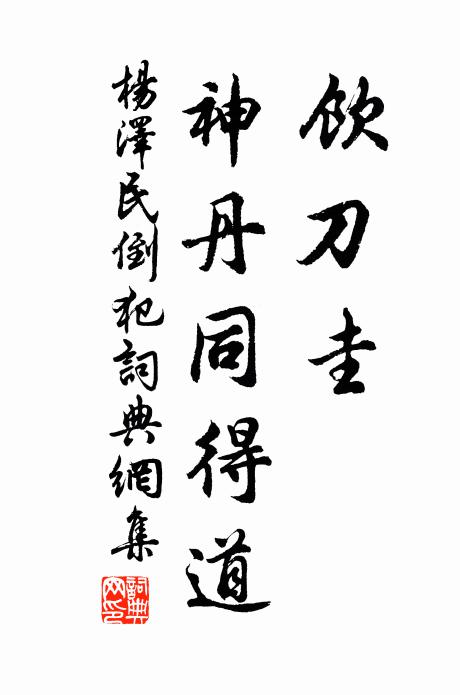 飲刀圭
神丹同得道
楊澤民倒犯詞典網集
詞典网印